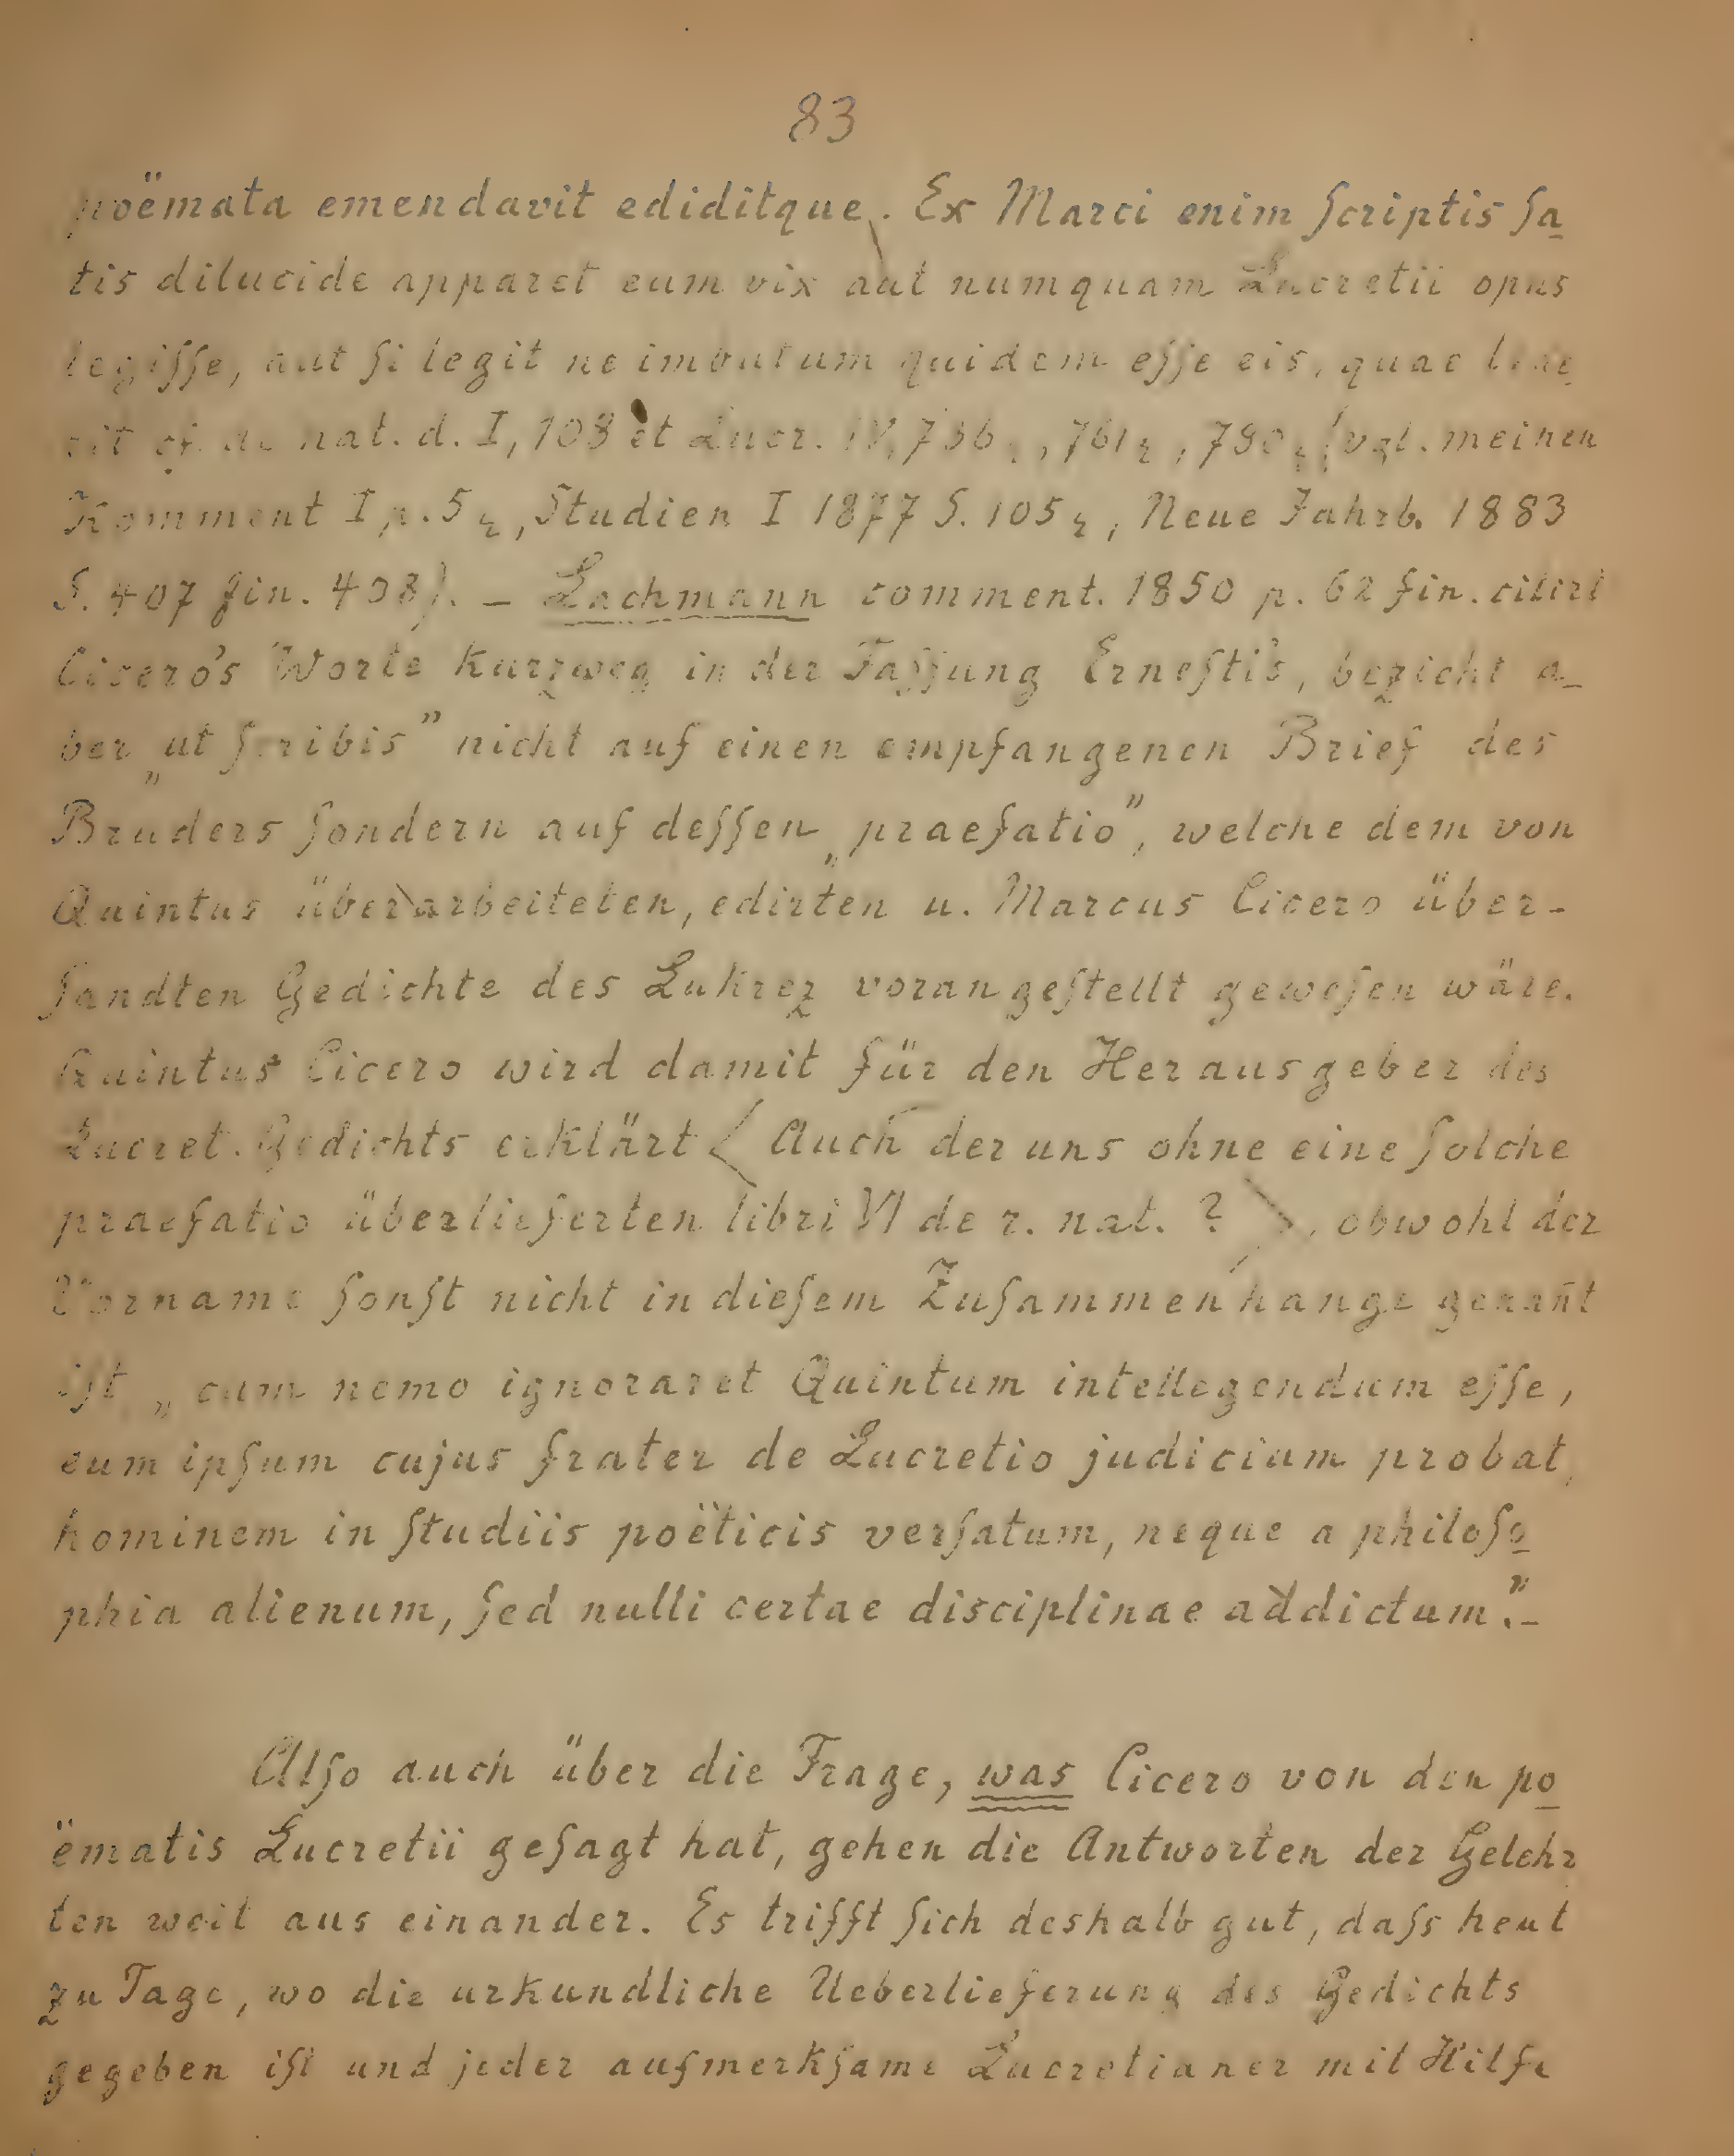 83
poëmata emendavit ediditque. Ex Marci enim ſcriptis ſa
tis dilucide apparet eum vix aut numquam Lucretii opus
legiſſe, aut ſi legit ne imbutum quidem eſſe eis, quae
cf. de nat. d. I, 108 et Lucr. IV, 736 , 761 , 780 (vgl. meinen
Komment I p. 5 , Studien I 1877 S. 105 , Neue Jahrb. 1883
S. 407 fin. 408). – Lachmann comment. 1850 p. 62 fin. citirt
Cicero's Worte kurzweg in der Faſſung Erneſti's, bezieht a_
ber „ut ſcribis” nicht auf einen empfangenen Brief des
Bruders ſondern auf deſſen „praefatio”, welche dem von
Quintus überarbeiteten, edirten u. Marcus Cicero über-
ſandten Gedichte des Lukrez vorangeſtellt geweſen wäre.
Quintus Cicero wird damit für den Herausgeber des
Lucret. Gedichts erklärt < Auch der uns ohne eine ſolche
praefatio überlieferten libri VI de r. nat. ? >, obwohl der
Vorname ſonſt nicht in dieſem Zuſammenhange genan̄t
iſt „cum nemo ignoraret Quintum intellegendum eſſe,
eum ipſum cujus frater de Lucretio judicium probat,
hominem in ſtudiis poëticis verſatum, neque a philoſo
phia alienum, ſed nulli certae disciplinae addictum.”–
Alſo auch über die Frage, was Cicero von den po
ëmatis Lucretii geſagt hat, gehen die Antworten der Gelehr
ten weit aus einander. Es trifft ſich deshalb gut, daſs heut
zu Tage, wo die urkundliche Ueberlieferung des Gedichts
gegeben iſt und jeder aufmerkſame Lucretianer mit Hilfe